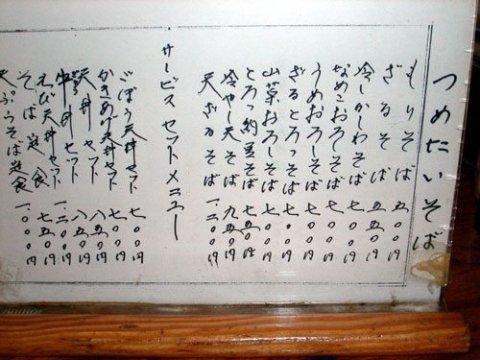 つめたいそば
もりそば 五〇〇円
ざるそば 五五〇円
冷しかしわそば 七〇〇円
なめこおろしそば 七〇〇円
うめおろしそば 七〇〇円
ざるとろろそば 七〇〇円
山菜おろしそば 七〇〇円
とろろ納豆そば 七五〇円
冷やし天そば 九五〇円
天ざるそば 一、二〇〇円
サービスセットメニュー
ごぼう天丼セット 七〇〇円
かきあげ天丼セット 七〇〇円
天丼セット 八五〇円
丼セット 八五〇円
牛丼セット
えび天丼セット 一、二〇〇円
そば定食 七五〇円
天ぷらそば定食 一、〇〇〇円